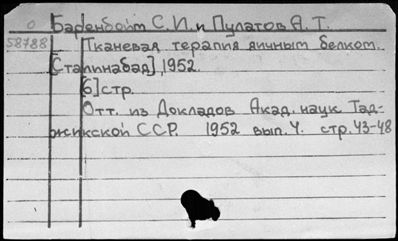 Баренбойм С. И. и Пулатов А. Т.
58788 Тканевая терапия яичным белком.
[Сталинабад], 1952.
6] стр.
Отт. из Докладов Акад. наук Тад-
жикской ССР. 1952 вып. 4. стр. 43-48